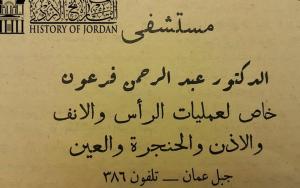 HISTORY OF JORDAN
مستشفى
الدكتور عبد الرحمن فرعون
خاص لعمليات الرأس والانف
والاذن والحنجرة والعين
جبل عمان — تلفون ٣٨٦